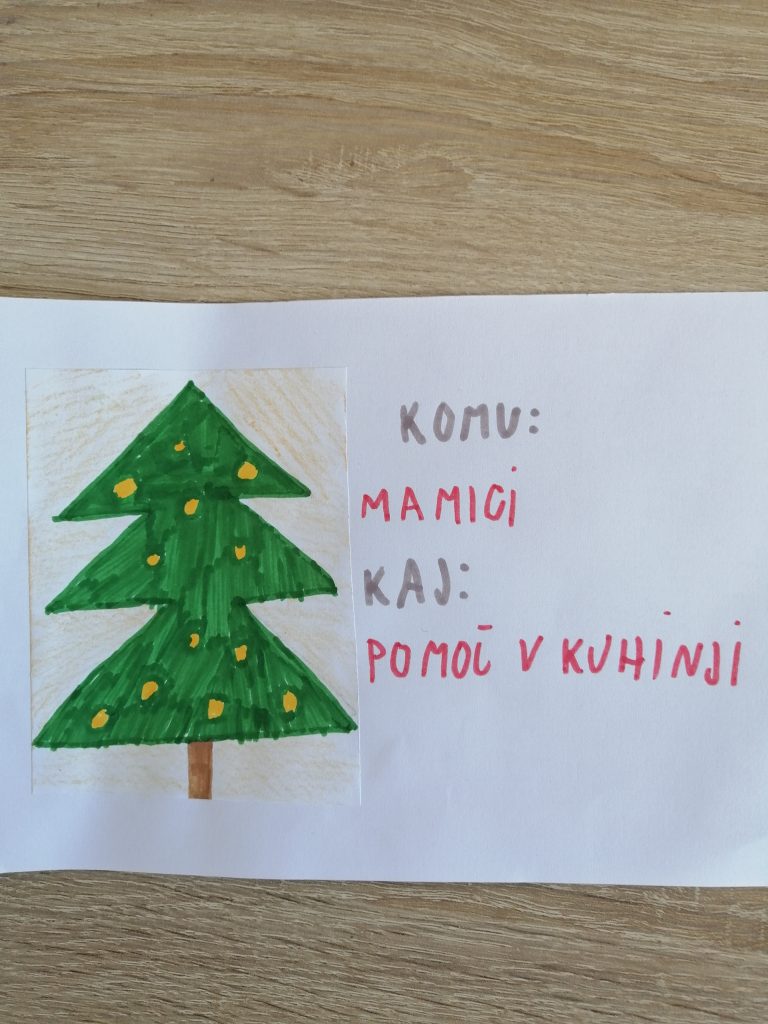 KOMU:
MAMICI
KAJ:
POMOČ V KUHINJI